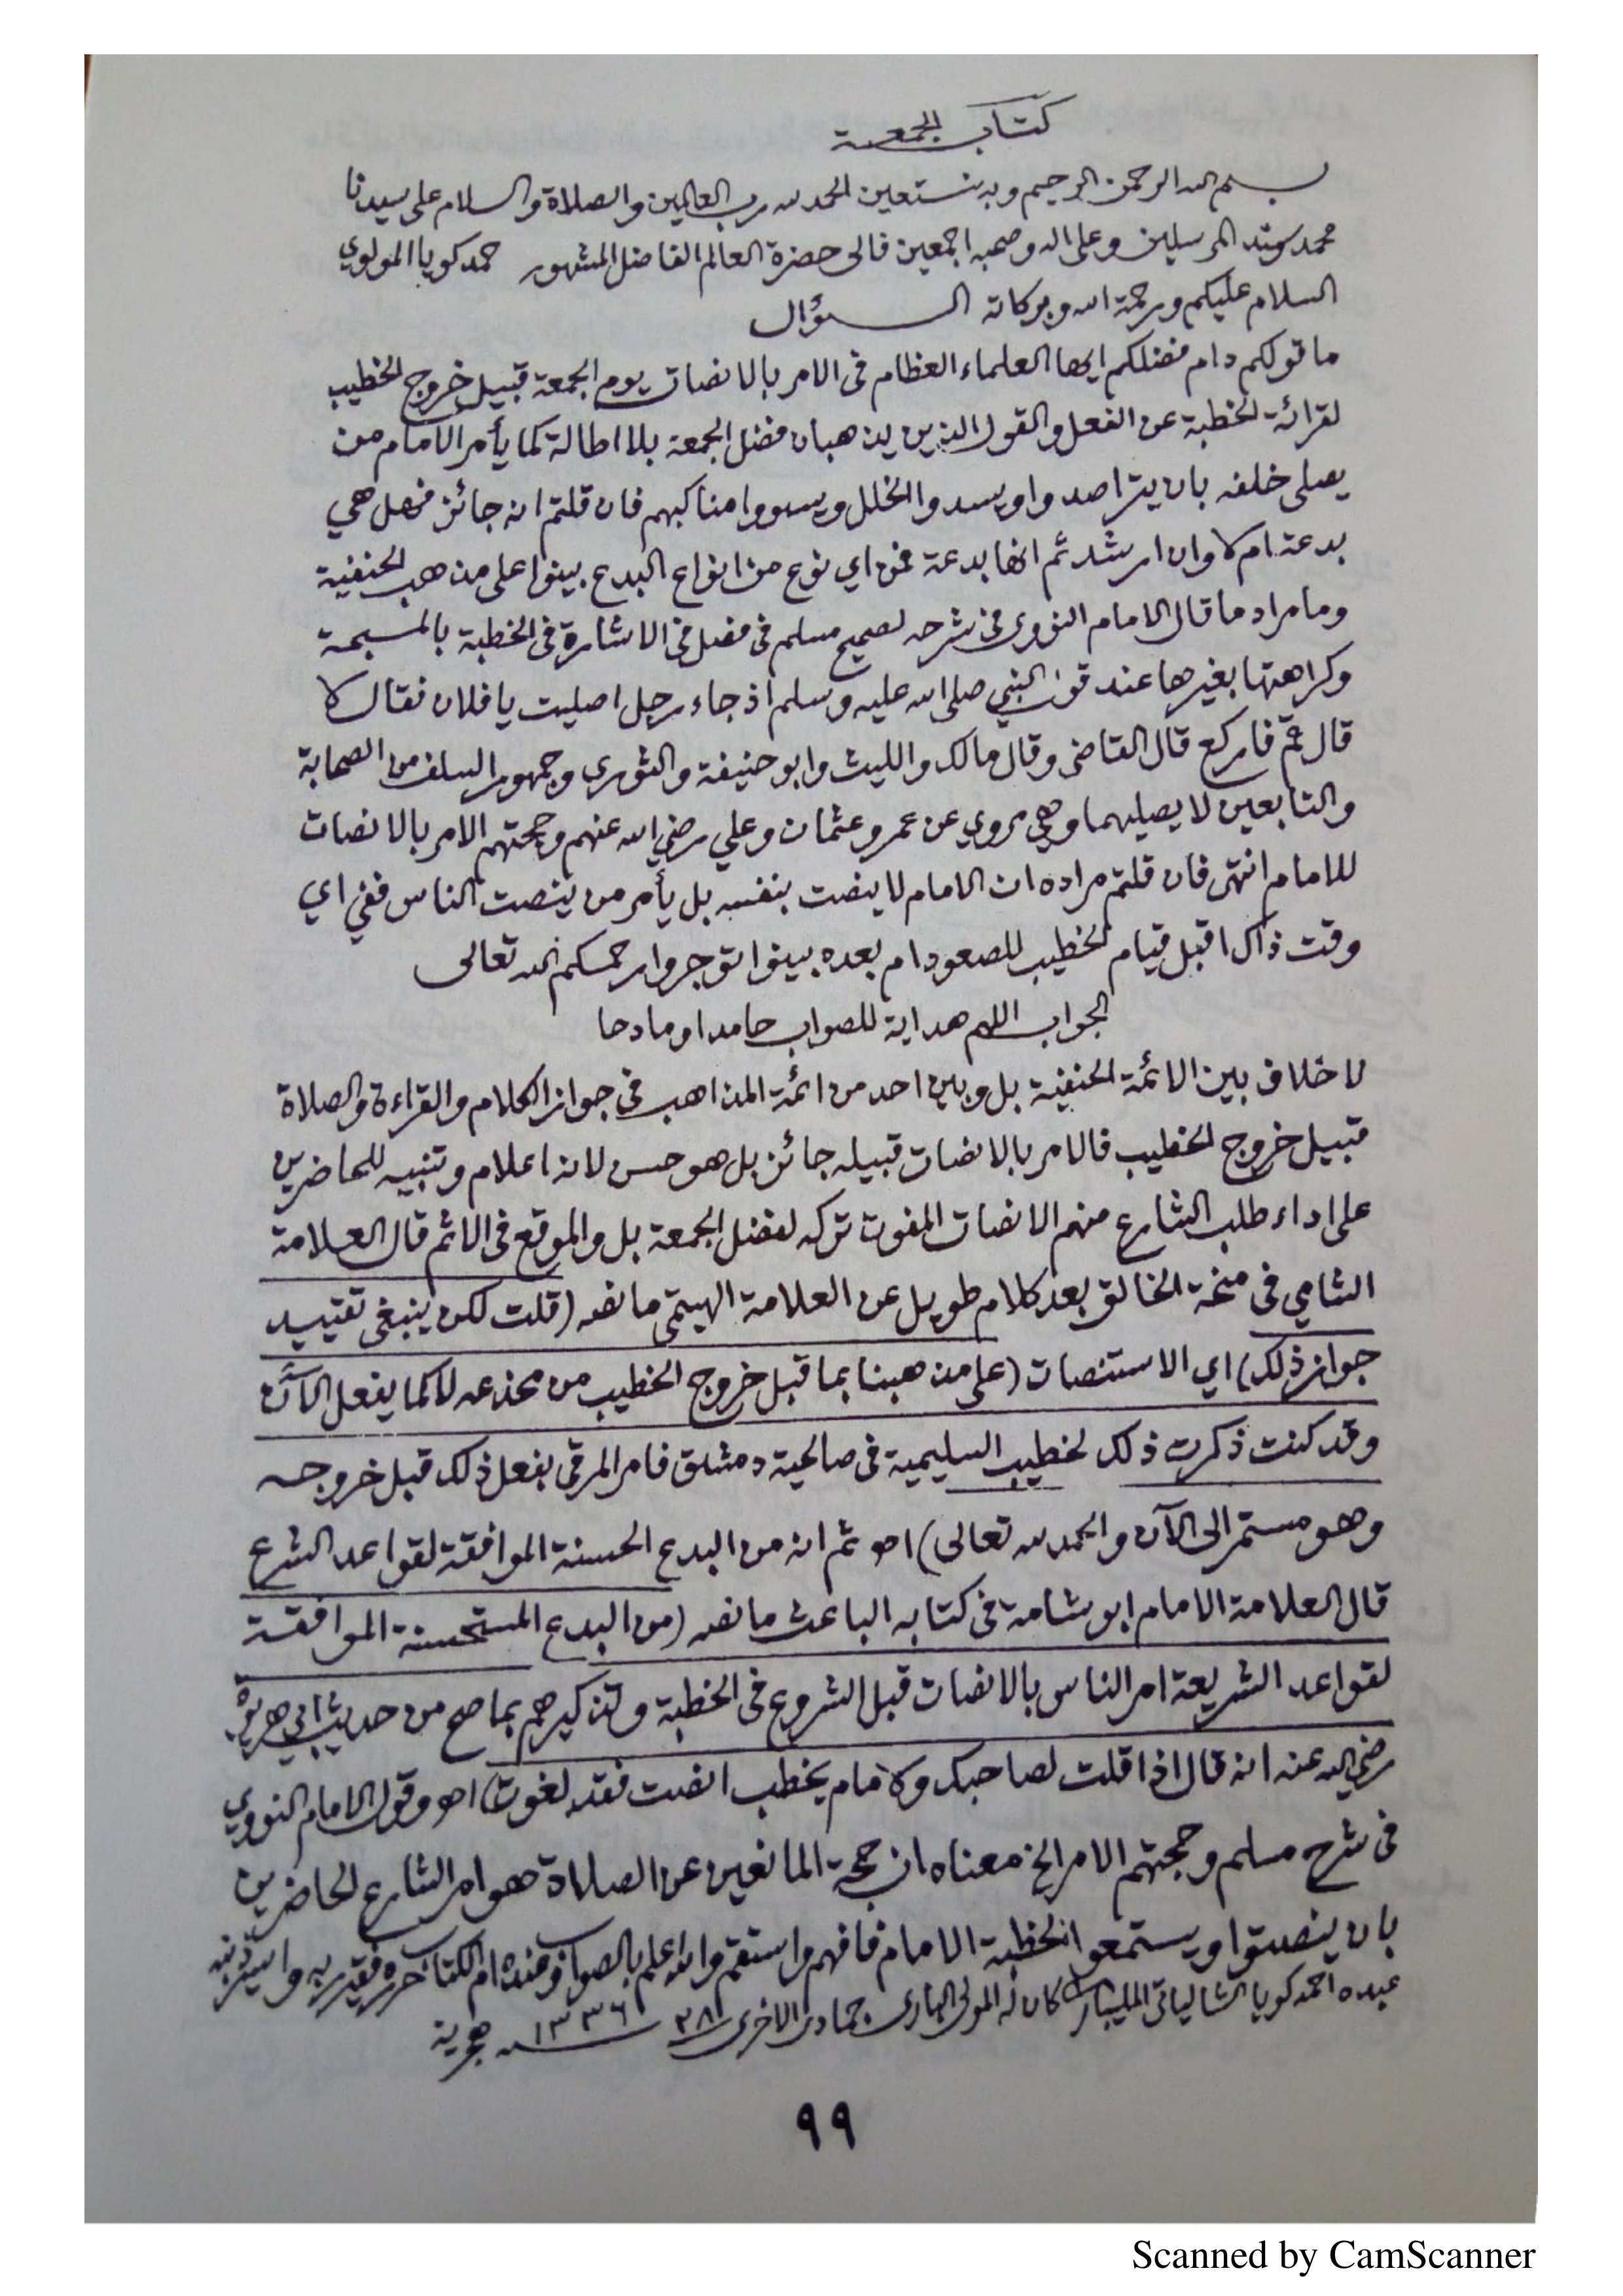 كتاب الجمعة
بسم الله الرحمن الرحيم وبه نستعين الحمد لله رب العالمين والصلاة والسلام على سيدنا
محمد سيد المرسلين وعلى اله وصحبه اجمعين فالى حضرة العالم الفاضل المشهور حمد كويا المولوي
السلام عليكم ورحمة الله وبركاته الســـؤال
ما قولكم دام فضلكم ايها العلماء العظام فى الامر بالانصات يوم الجمعة قبيل خروج الخطيب
لقرائة الخطبة عن الفعل والقول الذين يذهبان فضل الجمعة بلا اطالة كما يأمر الامام من
يصلى خلفه بان يتراصدوا ويسدوا الخلل ويسووا مناكبهم فان قلتم انه جائز فهل هي
بدعة ام لا وان ارشدتم انها بدعة فمن اي نوع من انواع البدع بينوا على مذهب الحنفية
وما مراد ما قال الامام النووى فى شرحه لصحيح مسلم فى فصل فى الاشارة فى الخطبة بالمسبحة
وكراهتها بغيرها عند قول النبي صلى الله عليه وسلم اذ جاء رجل اصليت يا فلان فقال لا
قال قم فاركع قال القاضى وقال مالك والليث وابو حنيفة والثورى وجمهور السلف من الصحابة
والتابعين لا يصليهما وهي مروي عن عمر وعثمان وعلي رضي الله عنهم وحجتهم الامر بالانصات
للامام انتهى فان قلتم مراده ان الامام لا ينصت بنفسه بل يأمر من ينصت الناس ففي اي
وقت ذاك اقبل قيام الخطيب للصعود ام بعده بينوا توجروا رحمكم الله تعالى
الجواب اللهم هداية للصواب حامدا ومادحا
لا خلاف بين الائمة الحنفية بل وبين احد من ائمة المذاهب فى جواز الكلام والقراءة والصلاة
قبيل خروج الخطيب فالامر بالانصات قبيله جائز بل هو حسن لانه اعلام وتنبيه للحاضرين
على اداء طلب الشارع منهم الانصات المفوت تركه لفضل الجمعة بل والموقع فى الاثم قال العلامة
الشامي فى منحة الخالق بعد كلام طويل عن العلامة الهيتمي ما نصه (قلت لكن ينبغى تقييد
جواز ذلك) اي الاستنصات (على مذهبنا بما قبل خروج الخطيب من مخدعه لا كما يفعل الآن
وقد كنت ذكرت ذلك لخطيب السليمية فى صالحية دمشق فامر المرقى بفعل ذلك قبل خروجه
وهو مستمر الى الآن والحمد لله تعالى) اهـ ثم انه من البدع الحسنة الموافقة لقواعد الشرع
قال العلامة الامام ابو شامة فى كتابه الباعث ما نصه (من البدع المستحسنة الموافقة
لقواعد الشريعة امر الناس بالانصات قبل الشروع فى الخطبة وتذكيرهم بما صح من حديث ابي هريرة
رضي الله عنه انه قال اذا قلت لصاحبك والامام يخطب انصت فقد لغوت) اهـ وقول الامام النووي
فى شرح مسلم وحجتهم الامر الخ معناه ان حجة المانعين عن الصلاة هو امر الشارع الحاضرين
بان ينصتوا ويستمعوا لخطبة الامام فافهم واستقم والله اعلم بالصواب وعنده ام الكتاب حرره فقير ربه واسير ذنبه
عبده احمد كويا الشالياتى المليبارى كان له المولى البارى جمادى الاخرى ٢٨ ١٣٣٦ هجرية
٩٩
Scanned by CamScanner